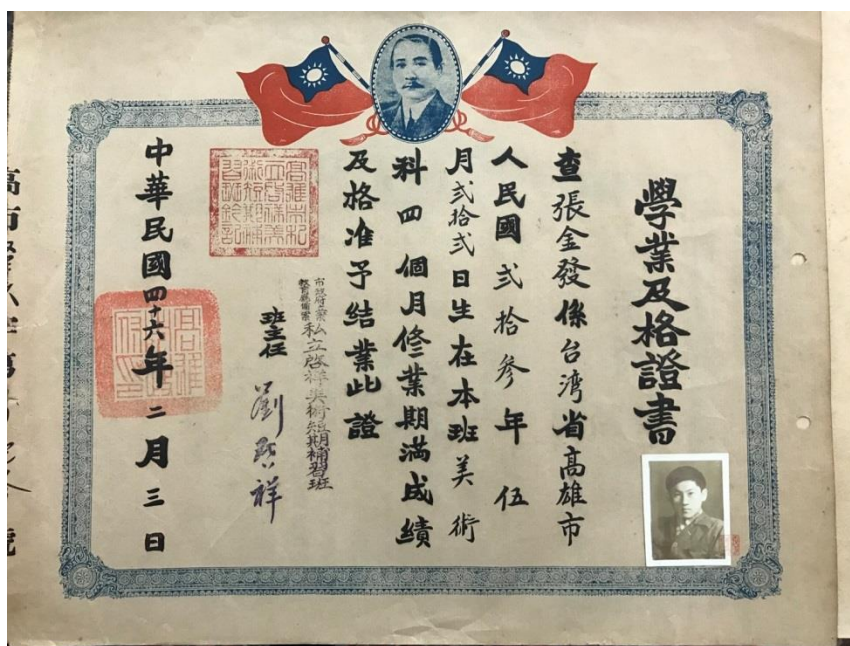 學業及格證書
查張金發係台湾省高雄市
人民國弍拾叁年伍
月弍拾弍日生在本班美術
科四個月修業期滿成績
及格准予結業此證
市政府立案
私立啓祥美術短期補習班
班主任 劉啓祥
中華民國四十六年二月三日